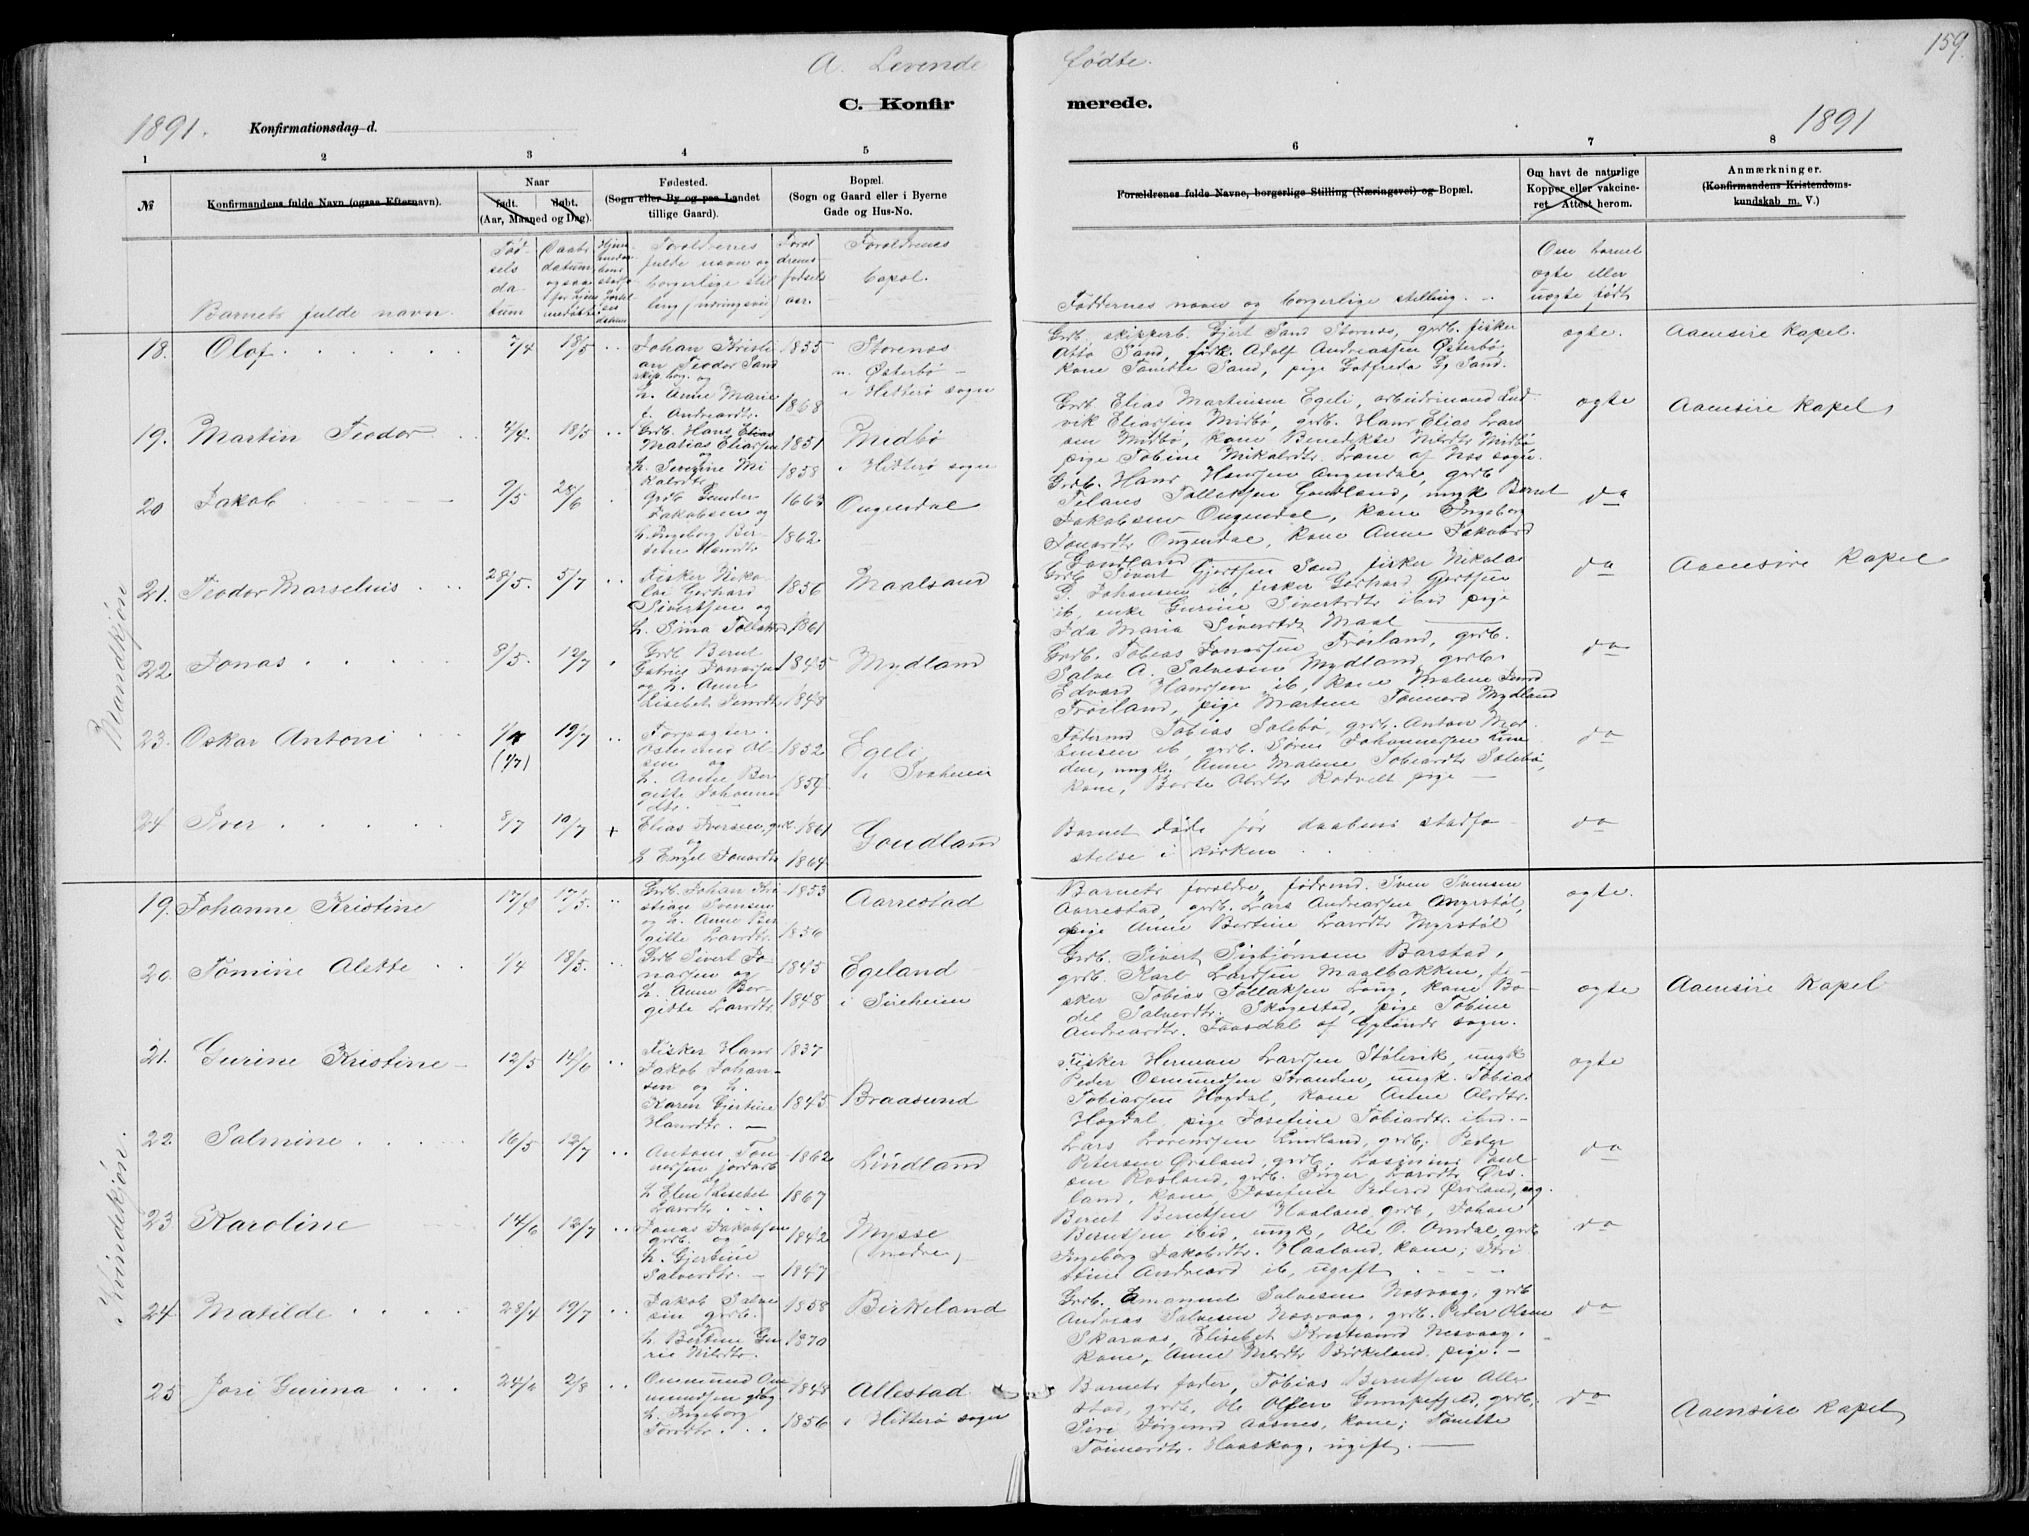 159.
A. Levende fødte.
C. Konfirmerede.
1891. Konfirmationsdag d. 1891
1 2 3 4 5 6 7 8
№
Konfirmandens fulde Navn (ogsaa Efternavn).
Naar
født. døbt.
(Aar, Maaned og Dag).
Fødested.
(Sogn eller By og paa Landet
tillige Gaard).
Bopæl.
(Sogn og Gaard eller i Byerne
Gade og Hus-No.
Forældrenes fulde Navne, borgerlige Stilling (Næringsvei) og Bopæl.
Om havt de naturlige
Kopper eller vakcine-
ret. Attest herom.
Anmærkninger.
(Konfirmandens Kristendoms-
kundskab m. V.)
Barnets fulde navn.
Fød-
sels
da
tum
Daabs
datum
Forældrenes
fulde navn og
borgerlige stil
ling (næringsvei)
Foræl
drenes
fødsels
aar.
Forældrenes
bopæl.
Faddernes navn og borgerlige stilling.
Om barnet
ægte eller
uægte født
Mandkjøn
18. Olaf 7/4 18/5
Johan Kristi
an Teodor Sand
og
h. Anne Marie
Andreasdtr.
1835
1868
Storenæs
n. Østerbø
i Hitterø sogn
Grdb. skipperb. Gjert Sand Stornæs, grdb. fisker
Atto Sand, Adolf Andreassen Østerbø,
kone Tonette Sand, pige Gotfreda Gj Sand.
ægte.
Aaensire Kapel.
19. Martin Teodor 4/4 18/5
Grdb. Hans Elias
Matias Eliassen
og
h. Severine Mi
kalsdtr
1851
1858
Midbø
i Hitterø sogn
Grdb. Elias Martinsen Egeli, arbeidsmand Lud
vik Eliassen Midbø, grdb. Hans Elias Lars
sen Midbø, kone Benedikte Nilsdtr Midbø
pige Tobine Mikalsdtr. Læne af Næs sogn.
ægte
Aaensire Kapel
20 Jakob 7/5 28/6
Grdb Gunder
Jakobsen og
h. Ingeborg Ber
tine Hansdtr
1663
1862
Ougendal
Grdb. Hans Hansen Ougendal, grdb
Telans Tallaksen Goudland, ungk Bernt
Jakobsen Ougendal, kone Ingeborg
Jonasdtr Ougendal, kone Anne Jakobsd
Goudland
do
21. Teodor Marselius 28/5. 5/7
Fisker Niko
lai Gerhard
Sivertsen og
h. Sina Tollaksd
1856
1861
Maalsand
Grdb Sivert Gjertsen Sand, fisker Nikolai
G. Johansen ib, fisker Gerhard Gjertsen
ib, enke Gurine Sivertsdtr ibid pige
Ida Maria Sivertsdt Maal
do
Aaensire Kapel
22. Jonas 8/5. 12/7
Grdb Bernt
Gabriel Jonassen
og h. Anne
Lisebet Jensdtr
1845
1848
Mydland
Grdb. Tobias Jonassen Trøiland, grdb.
Salve A. Salvesen Mydland, grdb.
Edvard Hanssen ib, kone Malene Jensd
Trøiland, pige Martine Tønnesd Mydland
do
23. Oskar Antoni 1/7 19/7
(1/7)
Osmund Ol
sen og
h. Anne Ber
gitte Johannes
dtr.
1852
1854
Egeli
i Svaheien
Fødermd Tobias Salebø, grdb. Anton Mor
tensen ib, grdb. Søren Johannesen Lin
den, ungk. Anne Malene Tobiasdtr Salebø,
kone, Berte Olsdtr Rødvelt pige
do
24 Iver 8/7 10/7 +
Elias Iversen, grdb.
og
h Engel Jonasdtr
1861
1864
Goudland
Barnet døde før daabens stadfæ
stelse i kirken
do
Kvindekjøn.
19. Johanne Kristine 17/4 17/5.
Grdb. Johan Kri
stian Svensen
og h. Anne Ber
gitte Larsdtr.
1853
1856
Aarrestad
Barnets forældre, fødermd. Sven Svensen
Aarrestad, grdb. Lars Andreassen Myrstøl,
pige Anne Bertine Larsdtr Myrstøl
ægte.
20. Tomine Alette 1/4 18/5.
Grdb Sivert Jo
nassen og
h. Anne Ber-
gitte Larsdtr
1845
1848
Egeland
i Sireheien
Grdb. Sivert Sigbjørnsen Barstad,
grdb. Karl Larssen Maalbakken, fi-
sker Tobias Tollaksen Loug, kone Bo-
del Salvesdtr. Skogestad, pige Tobine
Andreasdtr. Faasdal af Gylands sogn.
ægte
Aaensire Kapel
21. Gurine Kristine 12/5 14/6
Fisker Hans
Jakob Johan-
sen og h.
Karen Gjertine
Hansdtr.
1837
1845
Braasund
Fisker Herman Larssen Stølevik, ungk
Peder Osmundsen Stranden, ungk. Tobias
Tobiassen Høgdal, kone Anne Olsdtr.
Høgdal, pige Josefine Tobiasdtr. ibid.
ægte
22. Salmine 16/5 12/7
Antom Tøn
nesen jordarb
og
h Elen Lisebet
Larsdtr
1862
1867
Lindland
Lars Lorenssen Lindland, grdb; Peder
Petersen Ørsland, grdb. Lasinius Paul
sen Rosland, grdb. Jørger Larsdtr Ørs-
land, kone Josefine Pedersd Ørsland, ug.
do
23. Karoline 14/6 12/7
Jonas Jakobsen
grdb. og
h. Gjertine
Salvesdtr.
1842
1847
Mysse
(nedre)
Bernt Berntsen Haaland, grdb, Johan
Berntsen ibid, ungk, Ole O. Omdal, grdb
Ingeborg Jakobsdtr. Haaland, kone; Jøri
Stine Andreasd ib, ugift
do
24. Matilde 28/4 19/7
Jakob Salve
sen grdb.
og
h. Bertine Gu
rie Nilsdtr.
1858
1870
Birkeland
Grdb. Emanuel Salvesen Næsvaag, grdb
Andreas Salvesen Næsvaag, grdb. Peder Olsen
Skaraas, Elisebet Kristiansd Næsvaag.
kone, Anne Nilsdtr Birkeland, pige.
do
25 Jøri Gurina 24/6 2/8
Omund Om
undsen grdb og
h. Ingeborg
Tordtr.
1848
1856
Allestad
i Hitterø sogn
Barnets fader, Tobias Berntsen Alle
stad, grdb, Ole Olsen Gumpefjeld, grdb;
Siri Jørgensd Aasnes, kone; Tonette
Tønnesdtr. Haaskag, ugift.
do
Aaensire Kapel